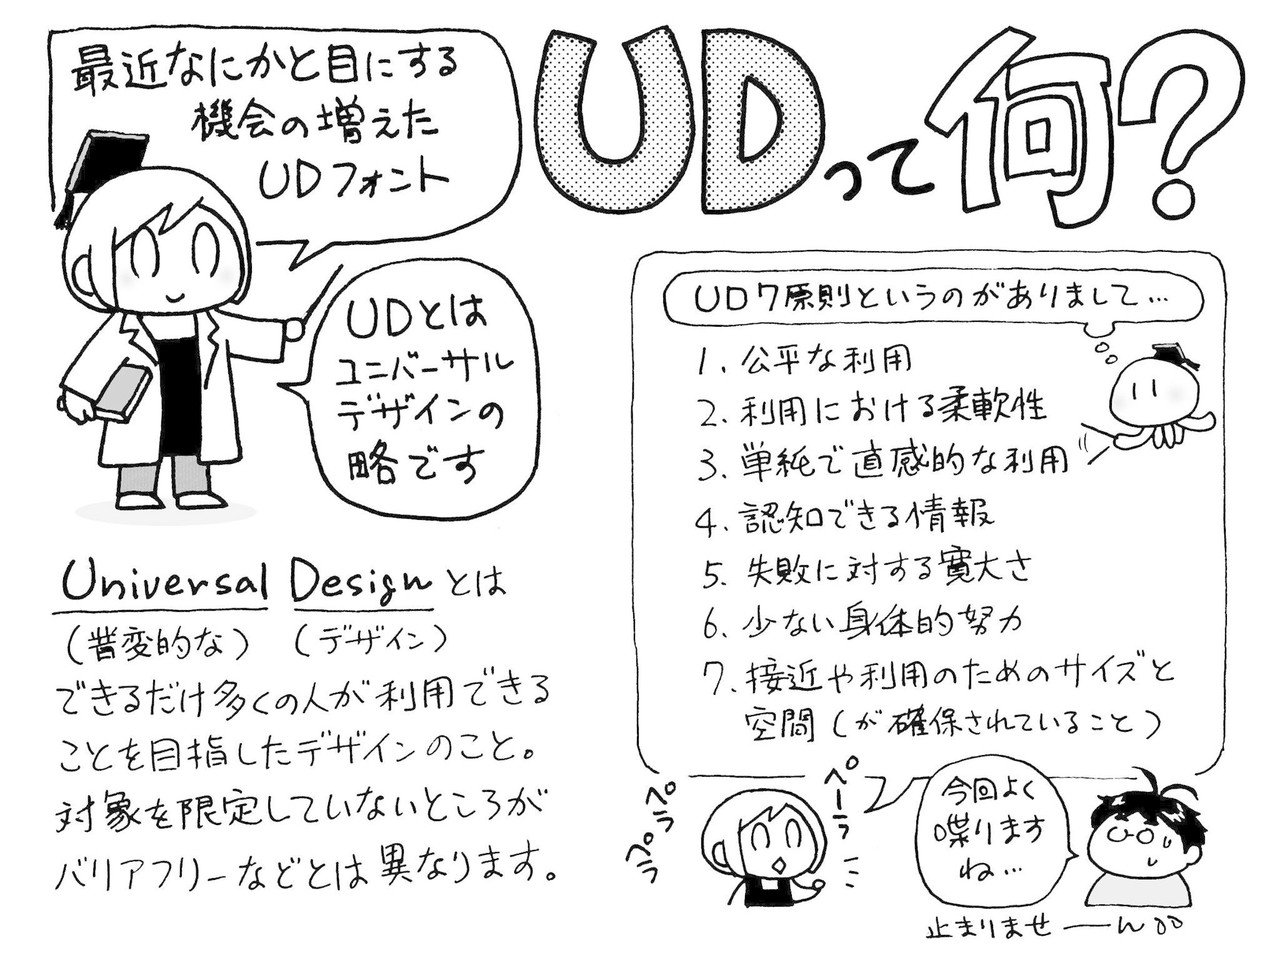 最近なにかと目にする
機会の増えた
UDフォント
UDって何?
UDとは
ユニバーサル
デザインの
略です
Universal Designとは
(普変的な) (デザイン)
できるだけ多くの人が利用できる
ことを目指したデザインのこと。
対象を限定していないところが
バリアフリーなどとは異なります。
UD7原則というのがありまして…
1. 公平な利用
2. 利用における柔軟性
3. 単純で直感的な利用
4. 認知できる情報
5. 失敗に対する寛大さ
6. 少ない身体的努力
7. 接近や利用のためのサイズと
空間(が確保されていること)
ペラペラ
ペーラ
今回よく
喋ります
ね…
止まりませーん